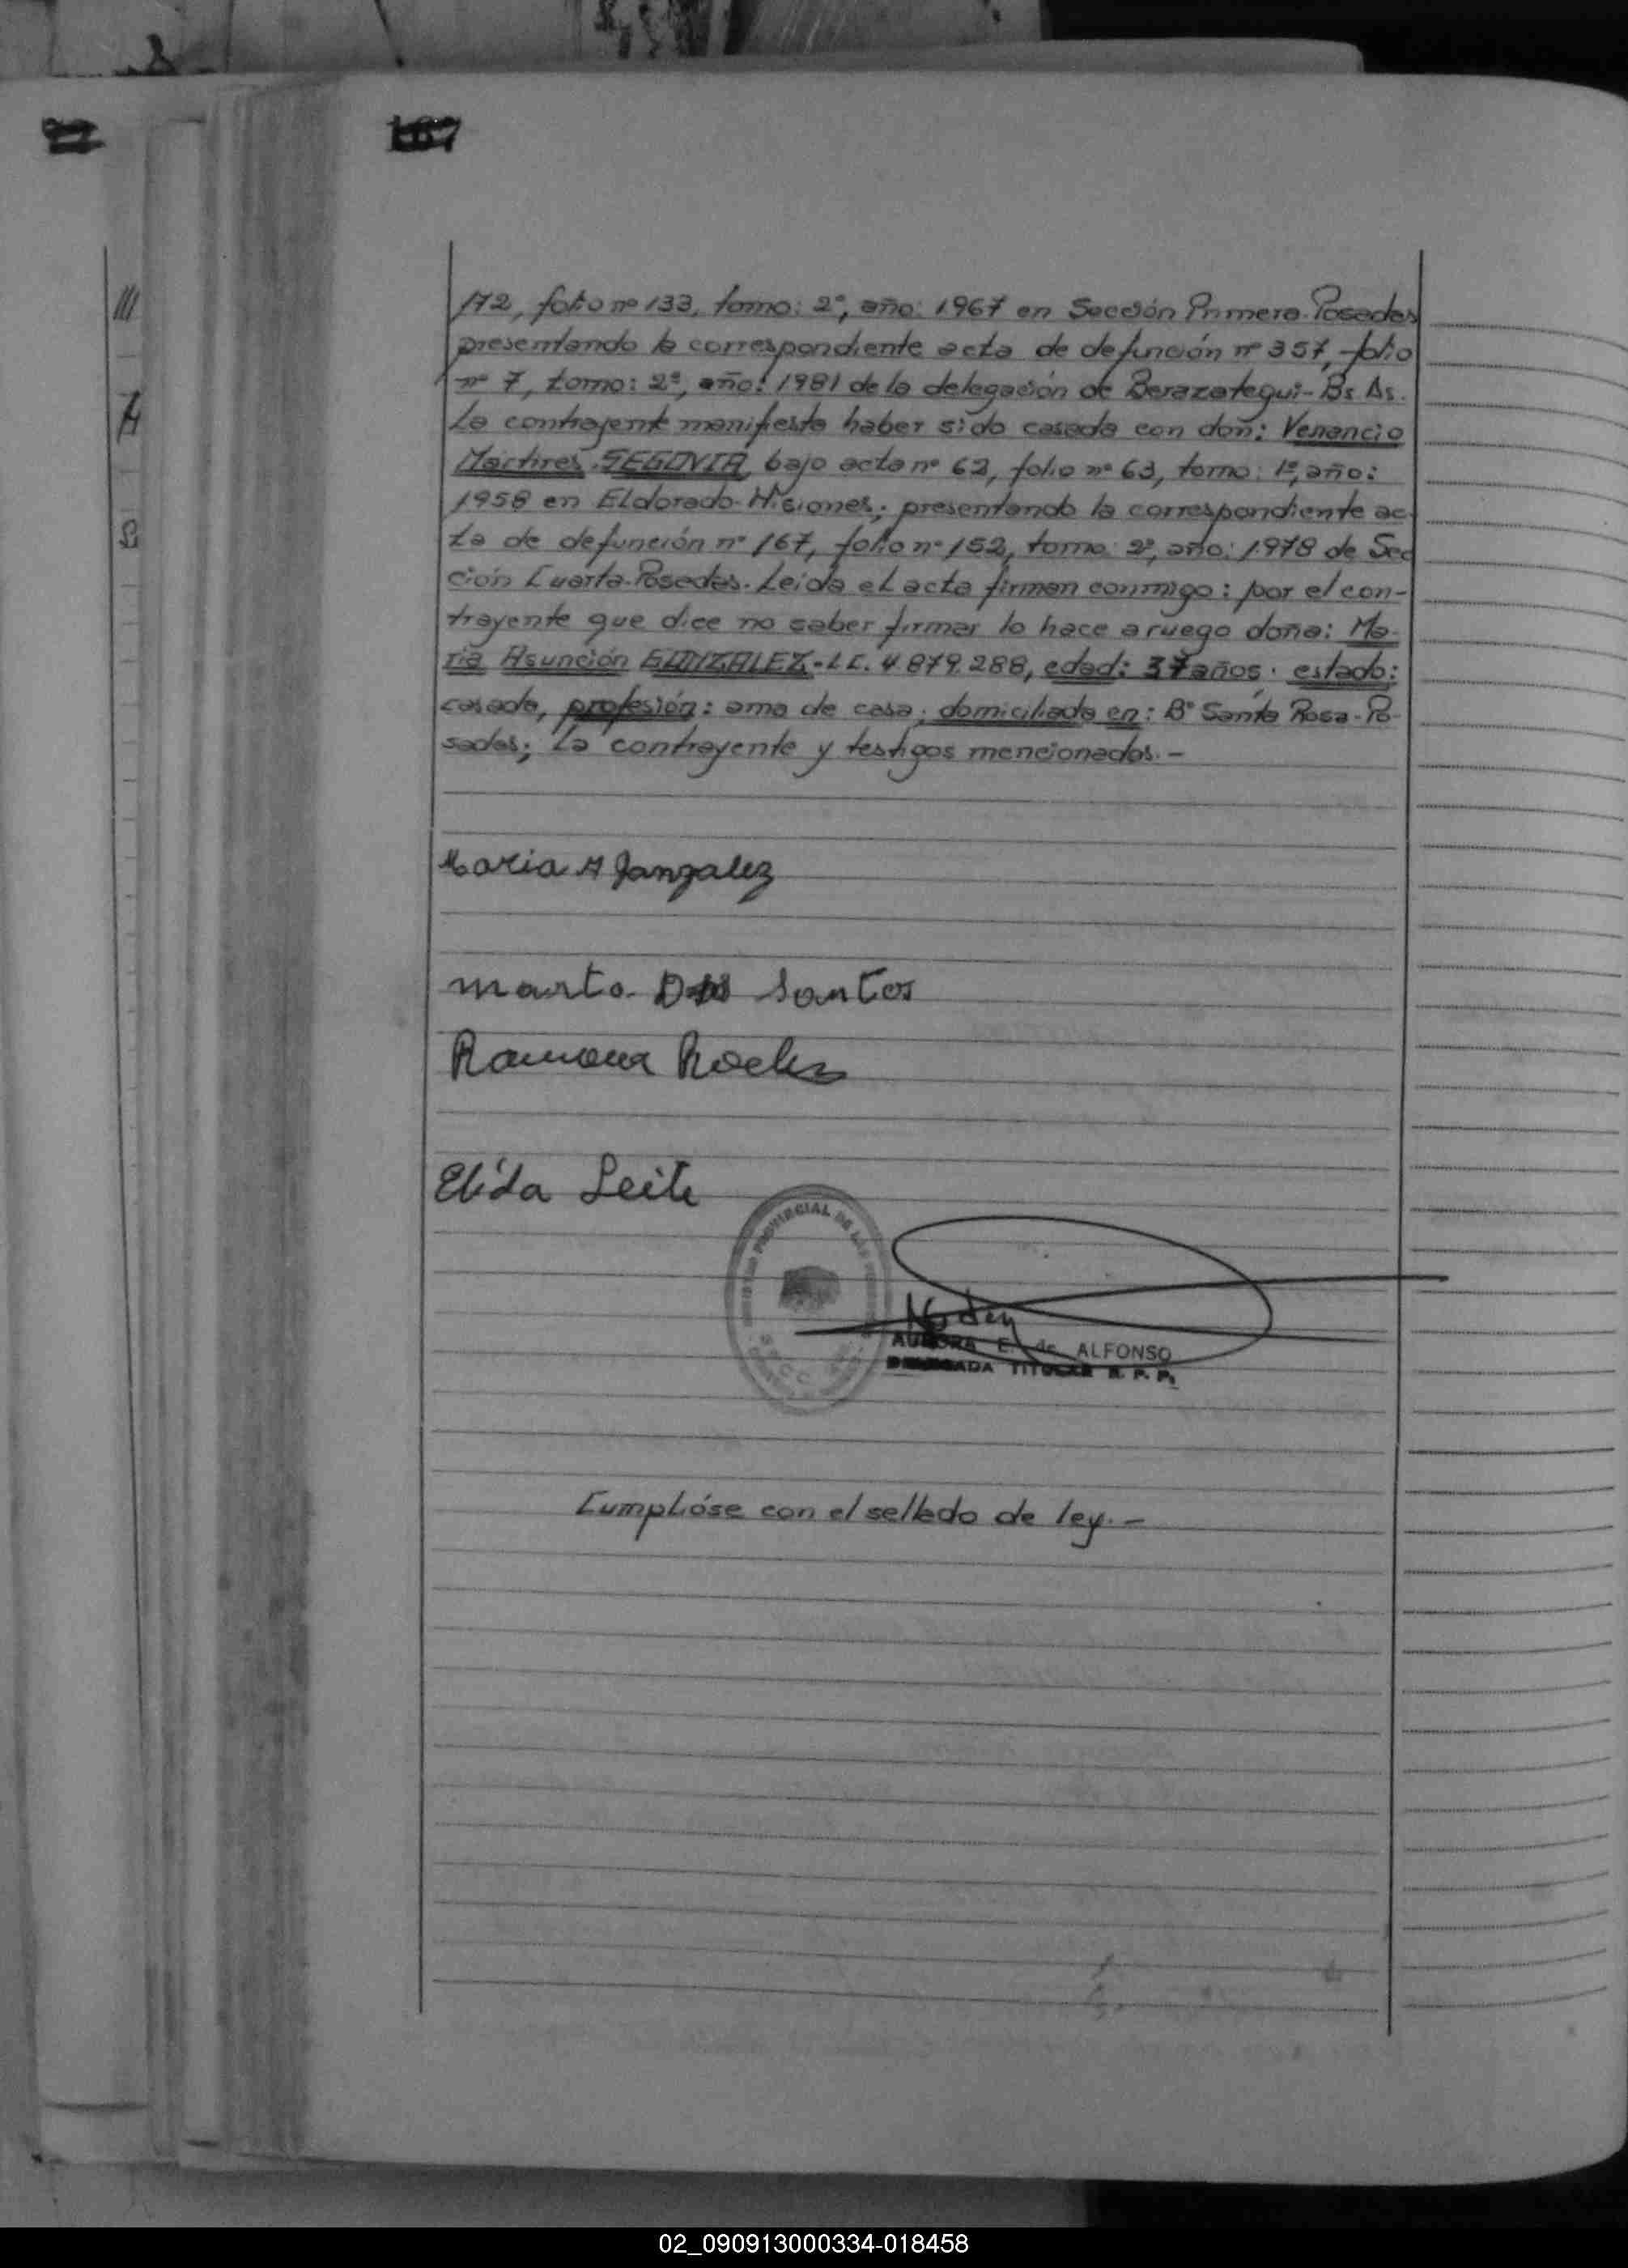 167
172, folio nº 133, tomo: 2º, año: 1967 en Sección Primera-Posadas
presentando la correspondiente acta de defunción nº 357, folio
nº 7, tomo: 2º, año: 1981 de la delegación de Berazategui-Bs. As.
La contrayente manifiesta haber sido casada con don: Venancio
Martires SEGOVIA, bajo acta nº 62, folio nº 63, tomo: 1º, año:
1958 en Eldorado-Misiones; presentando la correspondiente ac-
ta de defunción nº 167, folio nº 152, tomo: 2º, año: 1978 de Sec
ción Cuarta-Posadas. Leída el acta firman conmigo: por el con-
trayente que dice no saber firmar lo hace a ruego doña: Ma-
ria Asunción GONZALEZ-L.C. 4.879.288, edad: 37 años; estado:
casada, profesión: ama de casa; domiciliada en: Bº Santa Rosa-Po-
sadas; La contrayente y testigos mencionados.-
Maria A Gonzalez
Marta Dos Santos
Ramona
Elida Leite
PROVINCIAL DE LAS
AURORA E. de ALFONSO
DELEGADA TITULAR R. P. P.
Cumplióse con el sellado de ley.-
02_090913000334-018458